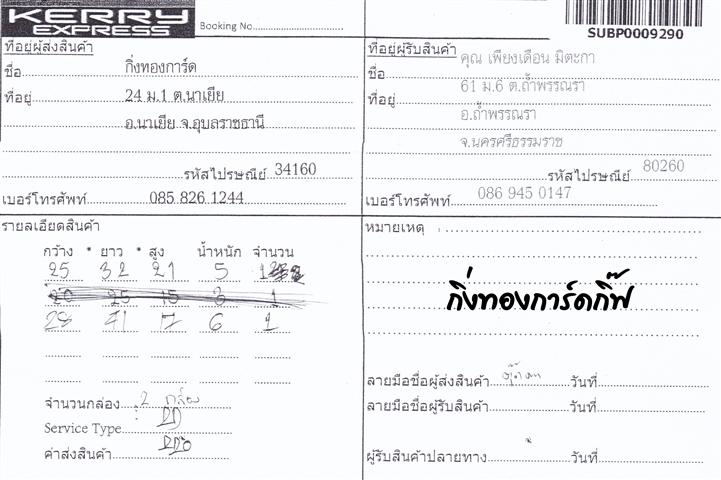 KERRY
EXPRESS
Booking No.
SUBP0009290
ที่อยู่ผู้ส่งสินค้า
ชื่อ กิ่งทองการ์ด
ที่อยู่ 24 ม.1 ต.นาเยีย
อ.นาเยีย จ.อุบลราชธานี
รหัสไปรษณีย์ 34160
เบอร์โทรศัพท์ 085 826 1244
ที่อยู่ผู้รับสินค้า คุณ เพียงเดือน มิตะกา
ชื่อ
61 ม.6 ต.ถ้ำพรรณรา
ที่อยู่
อ.ถ้ำพรรณรา
จ.นครศรีธรรมราช
รหัสไปรษณีย์ 80260
เบอร์โทรศัพท์ 086 945 0147
รายละเอียดสินค้า
กว้าง * ยาว * สูง น้ำหนัก จำนวน
25 32 21 5 1
20 25 15 3 1
41 17 6 1
จำนวนกล่อง 2 กล่อง
Service Type
ค่าส่งสินค้า
หมายเหตุ
กิ่งทองการ์ดกิ๊ฟ
ลายมือชื่อผู้ส่งสินค้า วันที่
ลายมือชื่อผู้รับสินค้า วันที่
ผู้รับสินค้าปลายทาง วันที่